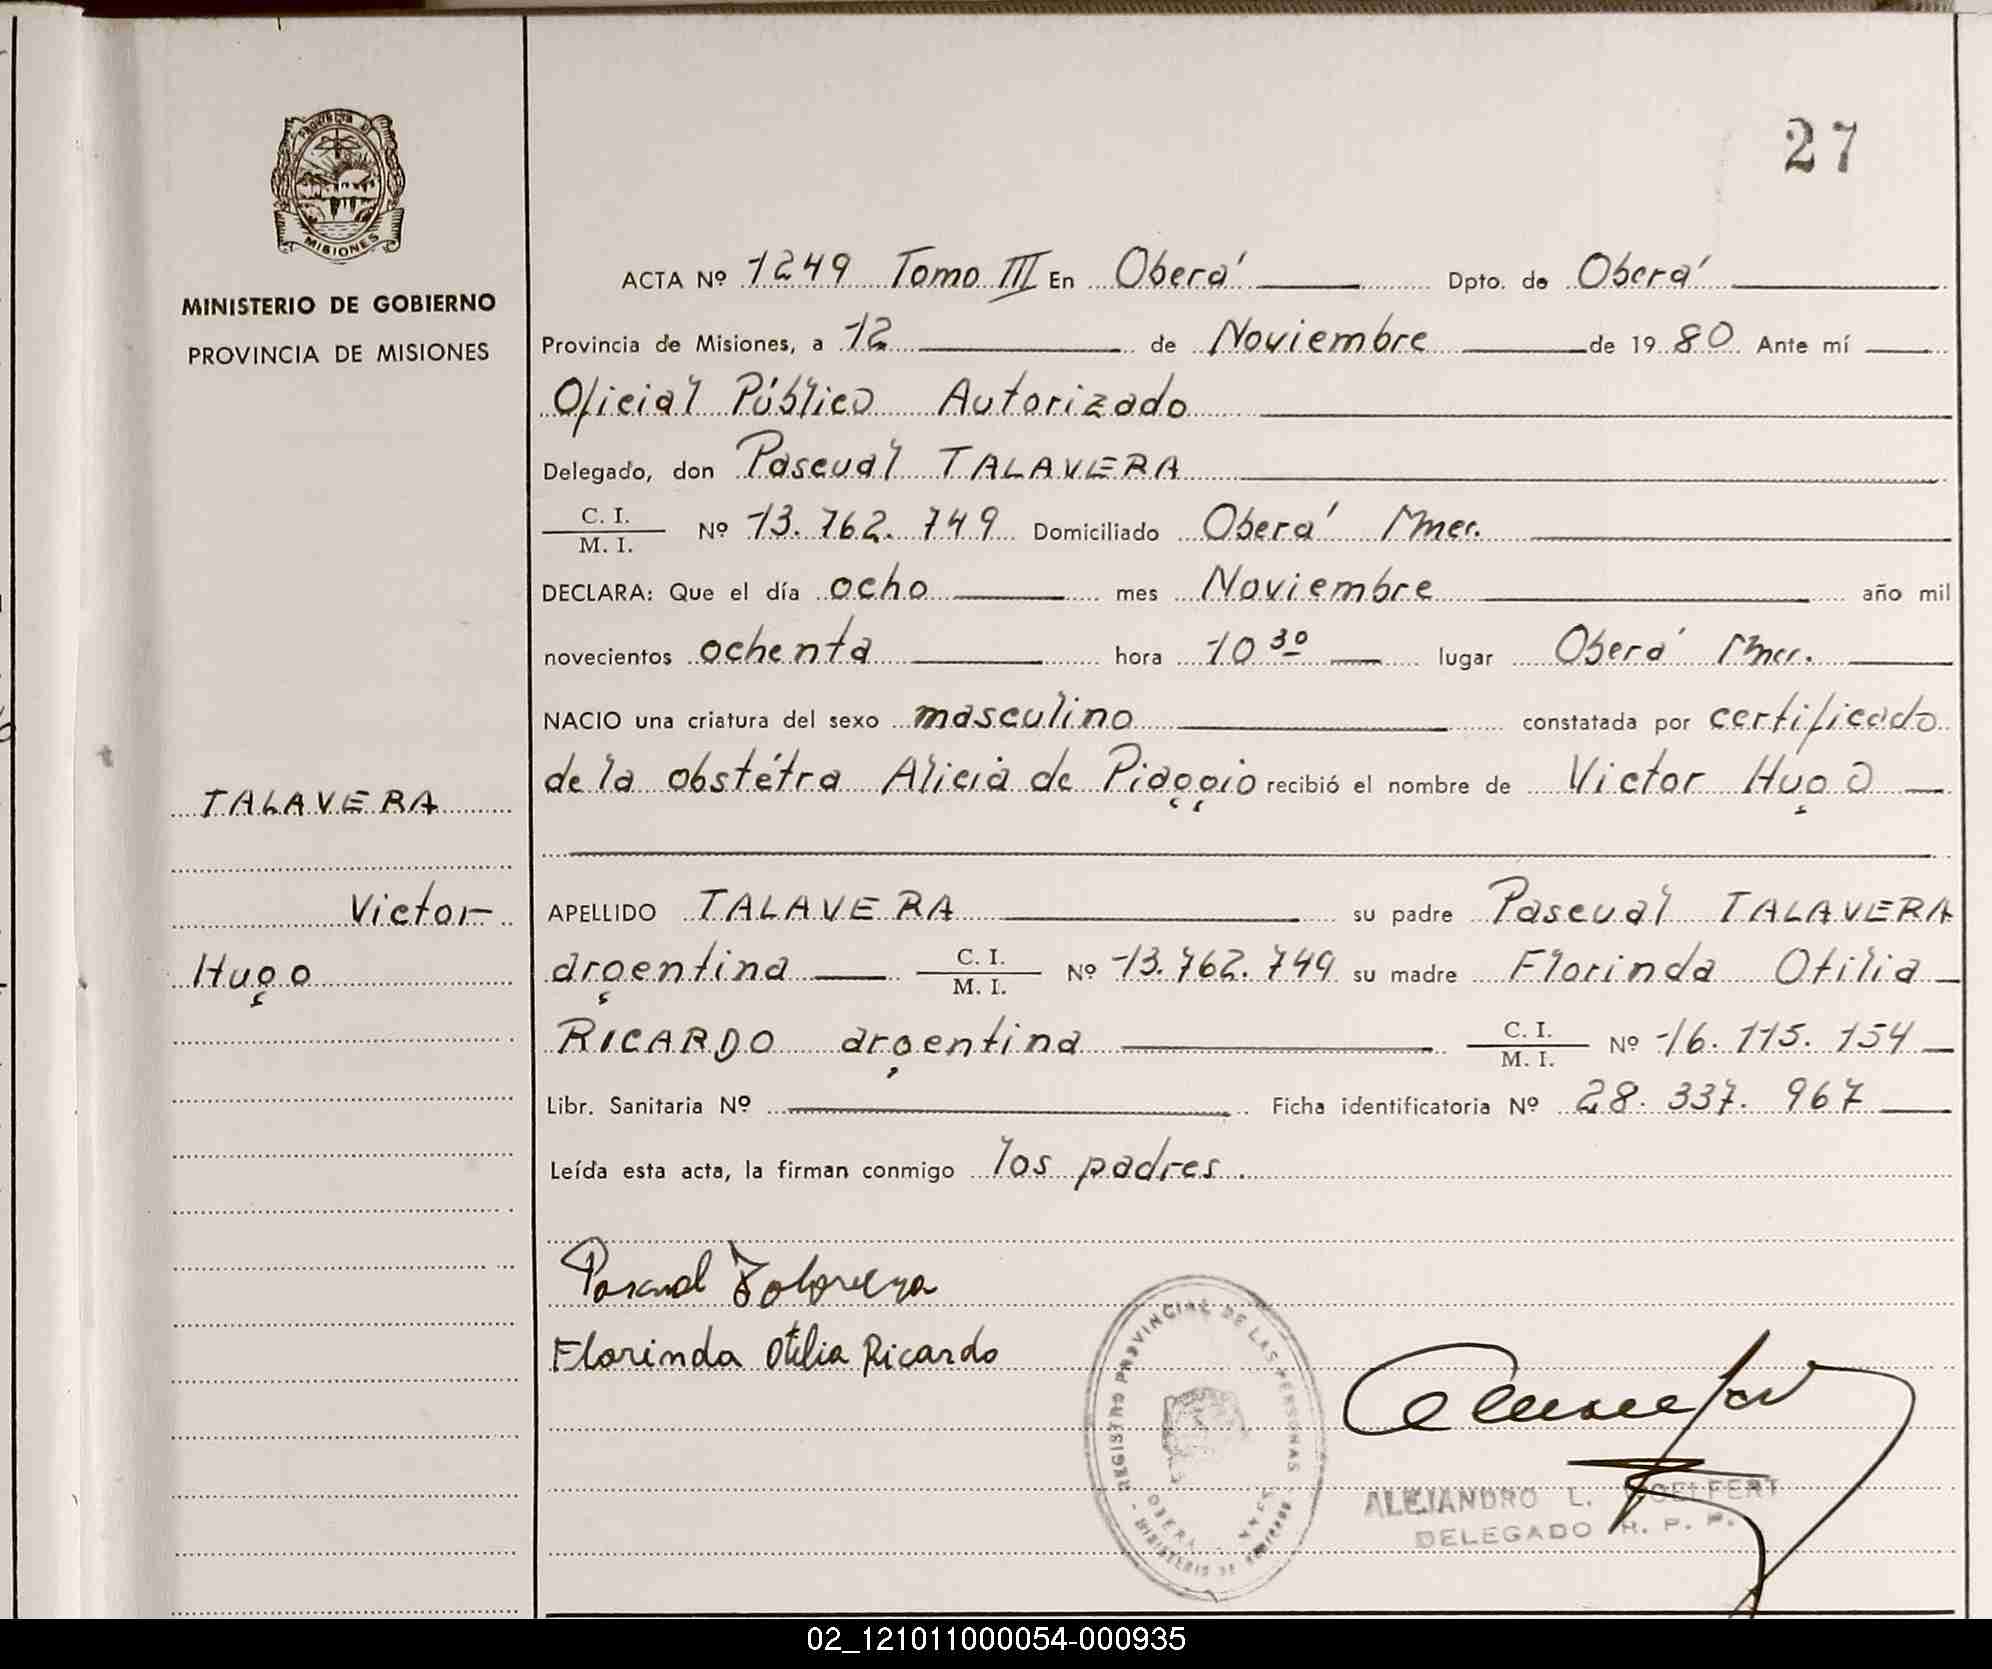 27
PROVINCIA DE
MISIONES
MINISTERIO DE GOBIERNO
PROVINCIA DE MISIONES
TALAVERA
Victor
Hugo
ACTA Nº 1249 Tomo III En Oberá Dpto. de Oberá
Provincia de Misiones, a 12 de Noviembre de 1980 Ante mí
Oficial Público Autorizado
Delegado, don Pascual TALAVERA
C. I.
M. I. Nº 13.762.749 Domiciliado Oberá Mnes.
DECLARA: Que el día ocho mes Noviembre año mil
novecientos ochenta hora 10 30 lugar Oberá Mnes.
NACIO una criatura del sexo masculino constatada por certificado
de la obstétra Alicia de Piaggio recibió el nombre de Victor Hugo
APELLIDO TALAVERA su padre Pascual TALAVERA
argentina C. I. M. I. Nº 13.762.749 su madre Florinda Otilia
RICARDO argentina C. I. M. I. Nº 16.115.154
Libr. Sanitaria Nº Ficha identificatoria Nº 28.337.967
Leída esta acta, la firman conmigo los padres.
Pascual Talavera
Florinda Otilia Ricardo
REGISTRO PROVINCIAL DE LAS PERSONAS
MINISTERIO DE GOBIERNO
OBERA
ALEJANDRO L.
DELEGADO R. P. P.
02_121011000054-000935